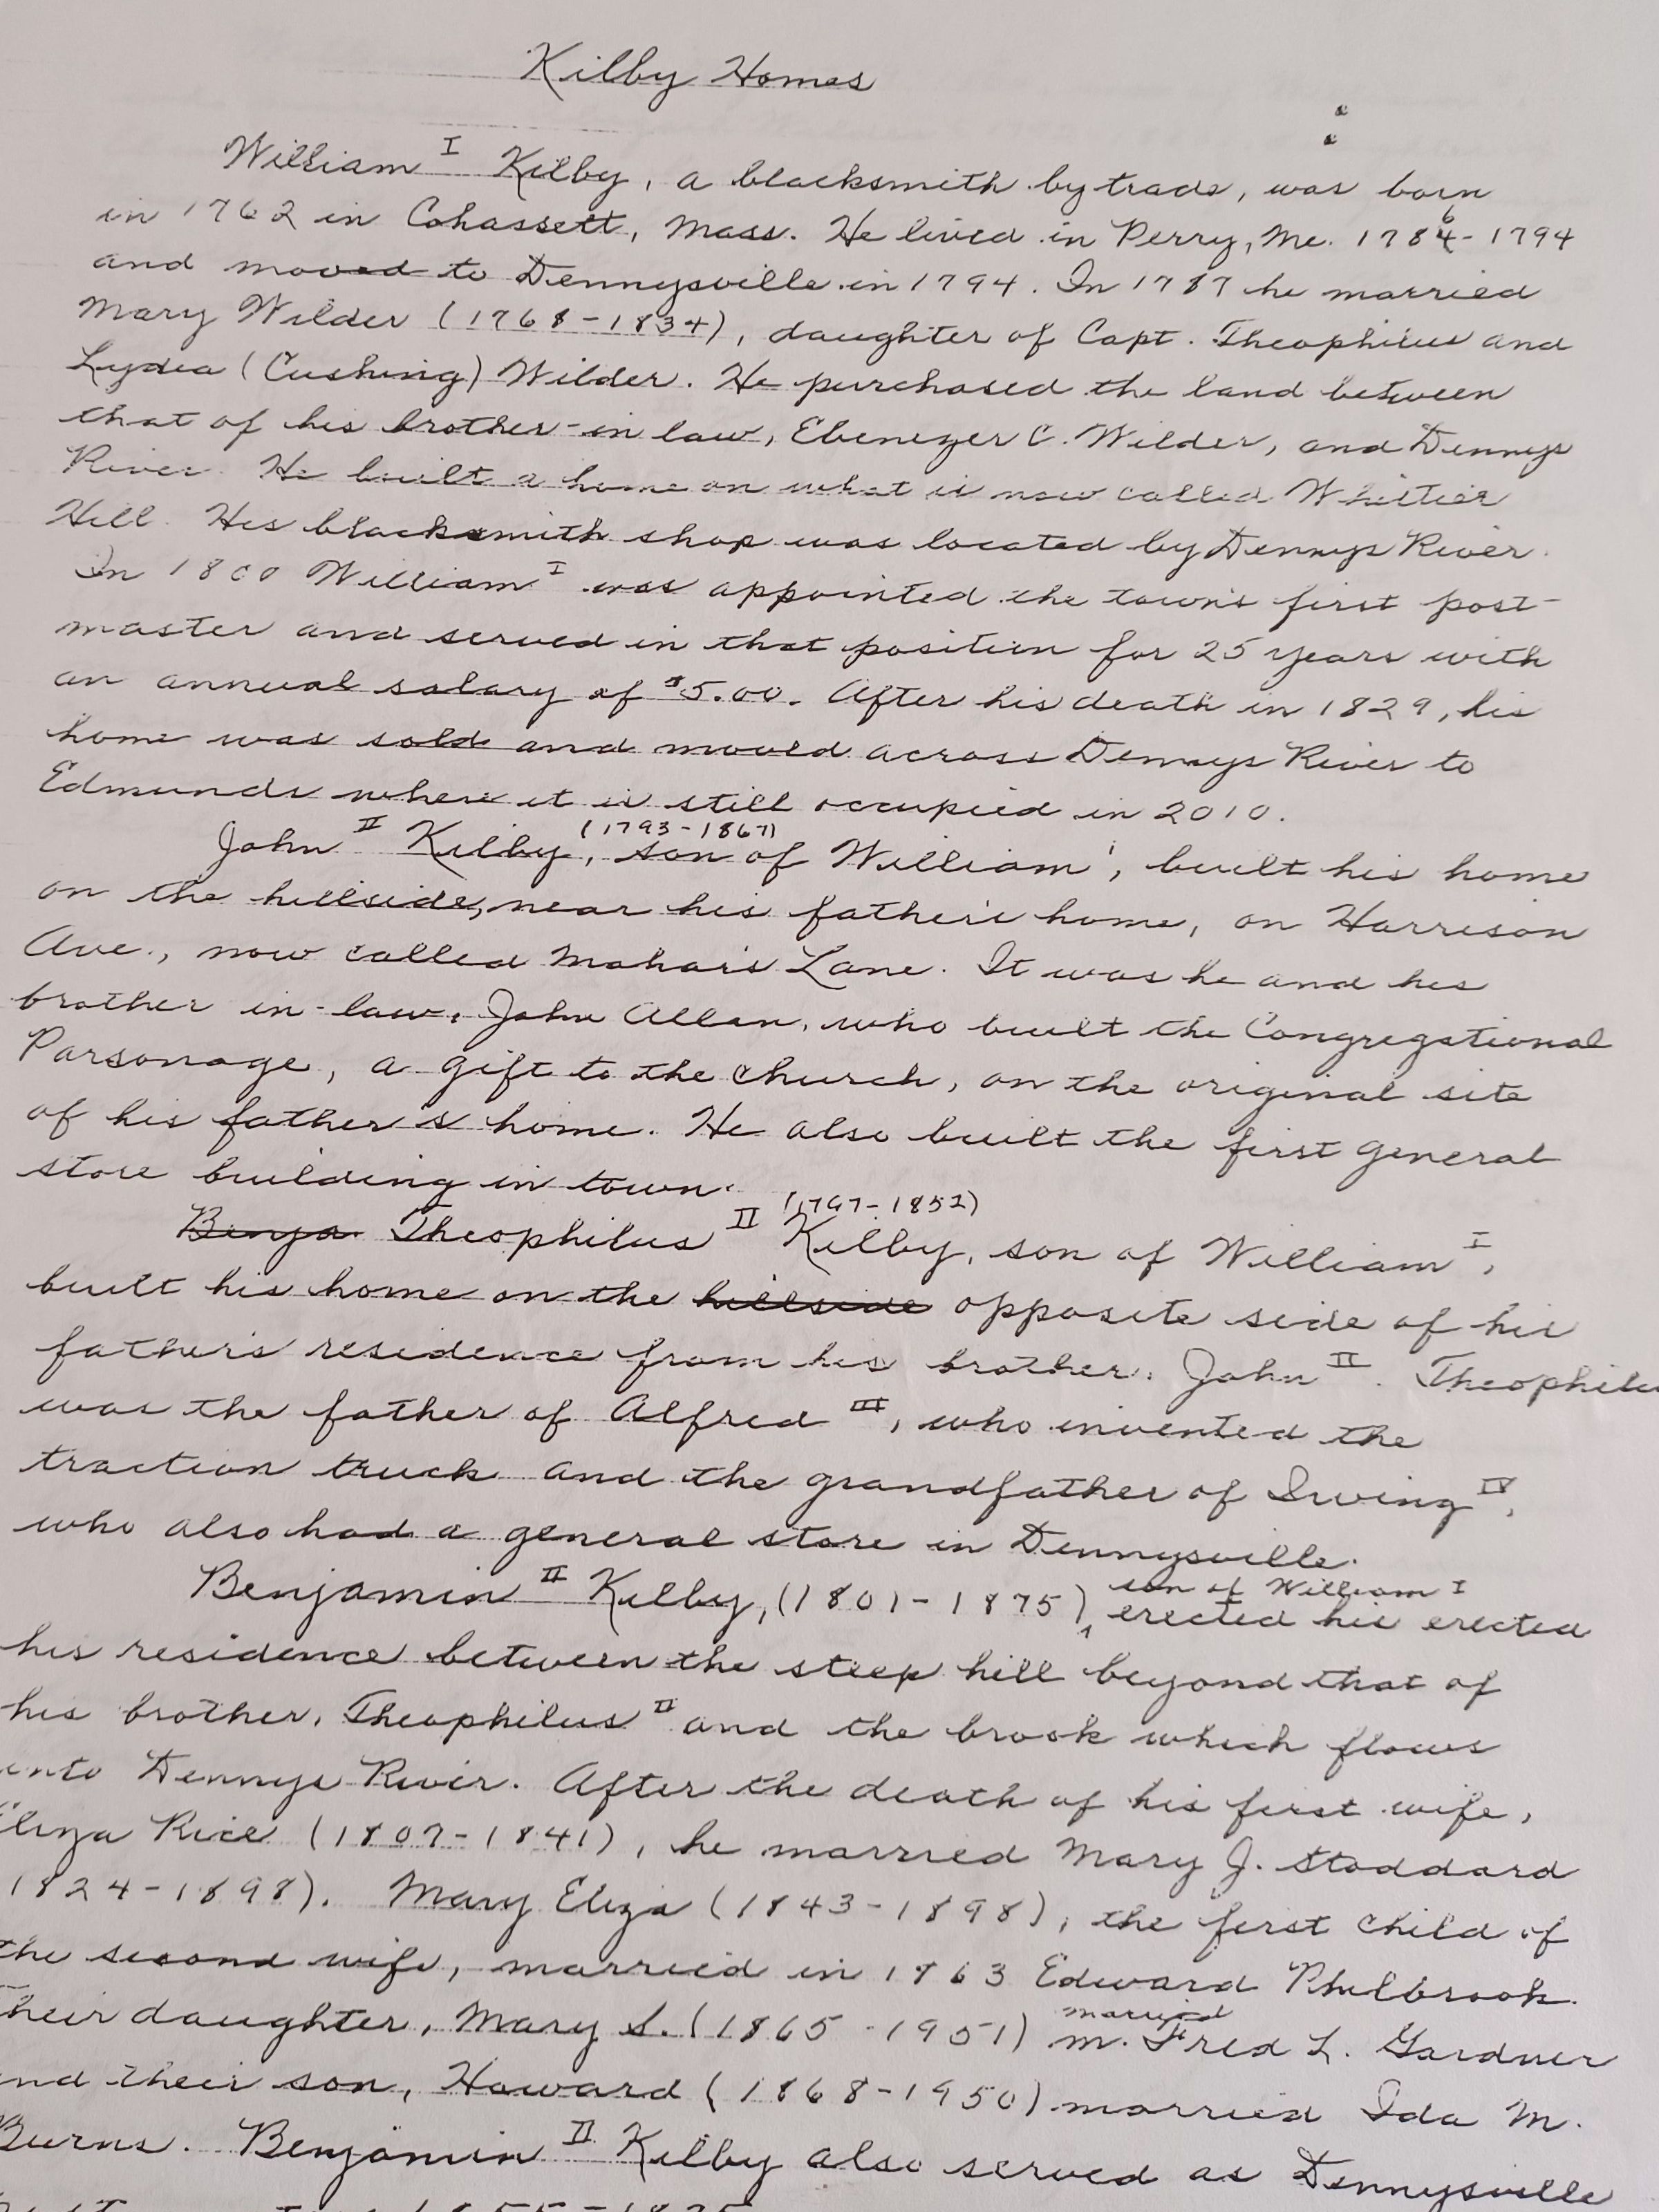 Kilby Homes
William I Kilby, a blacksmith by trade, was born
in 1762 in Cohassett, Mass. He lived in Perry, Me. 1786-1794
and moved to Dennysville in 1794. In 1787 he married
Mary Wilder (1768-1834), daughter of Capt. Theophilus and
Lydia (Cushing) Wilder. He purchased the land between
that of his brother-in law, Ebenezer C. Wilder, and Dennys
River. He built a home on what is now called Whittier
Hill. His blacksmith shop was located by Dennys River.
In 1800 William I was appointed the town's first post-
master and served in that position for 25 years with
an annual salary of $5.00. After his death in 1829, his
home was sold and moved across Dennys River to
Edmunds where it is still occupied in 2010.
(1793-1867)
John II Kilby, son of William I, built his home
on the hillside, near his father's home, on Harrison
Ave., now called Mahar's Lane. It was he and his
brother in-law, John Allan, who built the Congregational
Parsonage, a gift to the church, on the original site
of his father's home. He also built the first general
store building in town.
Benja Theophilus II Kilby, son of William I,
built his home on the hillside opposite side of his
father's residence from his brother, John II. Theophilu
was the father of Alfred III, who invented the
traction truck and the grandfather of Irving IV,
who also had a general store in Dennysville.
son of William I
Benjamin II Kilby, (1801-1875), erected his erected
his residence between the steep hill beyond that of
his brother, Theophilus II and the brook which flows
into Dennys River. After the death of his first wife,
Eliza Rice (1807-1841), he married Mary J. Stoddard
1824-1898). Mary Eliza (1843-1898), the first child of
the second wife, married in 1863 Edward Philbrook.
married
Their daughter, Mary S. (1865-1951) m. Fred L. Gardner
nd their son, Howard (1868-1950) married Ida M.
Burns. Benjamin II Kilby also served as Dennysville
1855-1875